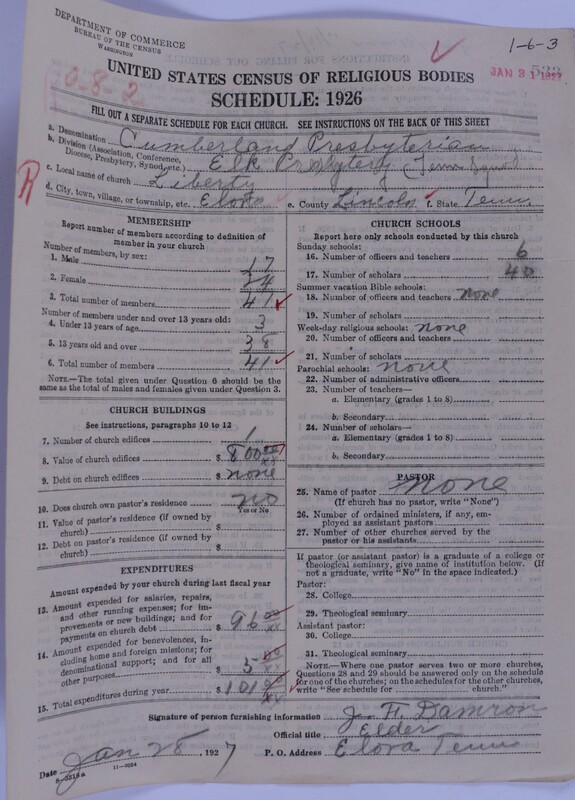 DEPARTMENT OF COMMERCE
BUREAU OF THE CENSUS
WASHINGTON
1-6-3
JAN 31 1927
0-8-2
UNITED STATES CENSUS OF RELIGIOUS BODIES
SCHEDULE: 1926
FILL OUT A SEPARATE SCHEDULE FOR EACH CHURCH. SEE INSTRUCTIONS ON THE BACK OF THIS SHEET
a. Denomination Cumberland Presbyterian
b. Division (Association, Conference, Diocese, Presbytery, Synod, etc.) Elk Presbytery (Tenn Synod
c. Local name of church Liberty
d. City, town, village, or township, etc. Elora e. County Lincoln f. State Tenn.
R
MEMBERSHIP
Report number of members according to definition of
member in your church
Number of members, by sex:
1. Male 17
2. Female 24
3. Total number of members 41
Number of members under and over 13 years old:
4. Under 13 years of age 3
5. 13 years old and over 38
6. Total number of members 41
NOTE.—The total given under Question 6 should be
same as the total of males and females given under Question 3.
CHURCH BUILDINGS
See instructions, paragraphs 10 to 12
7. Number of church edifices 1
8. Value of church edifices $ 800.00
9. Debt on church edifices $ none
10. Does church own pastor's residence no
Yes or No
11. Value of pastor's residence (if owned by
church) $
12. Debt on pastor's residence (if owned by
church) $
EXPENDITURES
Amount expended by your church during last fiscal year
13. Amount expended for salaries, repairs,
and other running expenses; for im-
provements or new buildings; and for
payments on church debt $ 96 00
14. Amount expended for benevolences, in-
cluding home and foreign missions; for
denominational support; and for all
other purposes $ 5 00
15. Total expenditures during year $ 101
CHURCH SCHOOLS
Report here only schools conducted by this church
Sunday schools:
16. Number of officers and teachers 6
17. Number of scholars 40
Summer vacation Bible schools:
18. Number of officers and teachers none
19. Number of scholars
Week-day religious schools: none
20. Number of officers and teachers
21. Number of scholars
Parochial schools: none
22. Number of administrative officers
23. Number of teachers—
a. Elementary (grades 1 to 8)
b. Secondary
24. Number of scholars—
a. Elementary (grades 1 to 8)
b. Secondary
PASTOR
25. Name of pastor none
(If church has no pastor, write "None")
26. Number of ordained ministers, if any, em-
ployed as assistant pastors
27. Number of other churches served by the
pastor or his assistants
If pastor (or assistant pastor) is a graduate of a college or
theological seminary, give name of institution below. (If
not a graduate, write "No" in the space indicated.)
Pastor:
28. College
29. Theological seminary
Assistant pastor:
30. College
31. Theological seminary
NOTE.—Where one pastor serves two or more churches,
Questions 28 and 29 should be answered only on the schedule
for one of the churches; on the schedules for the other churches,
write "See schedule for church."
Signature of person furnishing information J. H. Damron
Official title Elder
Date Jan 28, 1927 P. O. Address Elora Tenn
8-5318a 11-9024